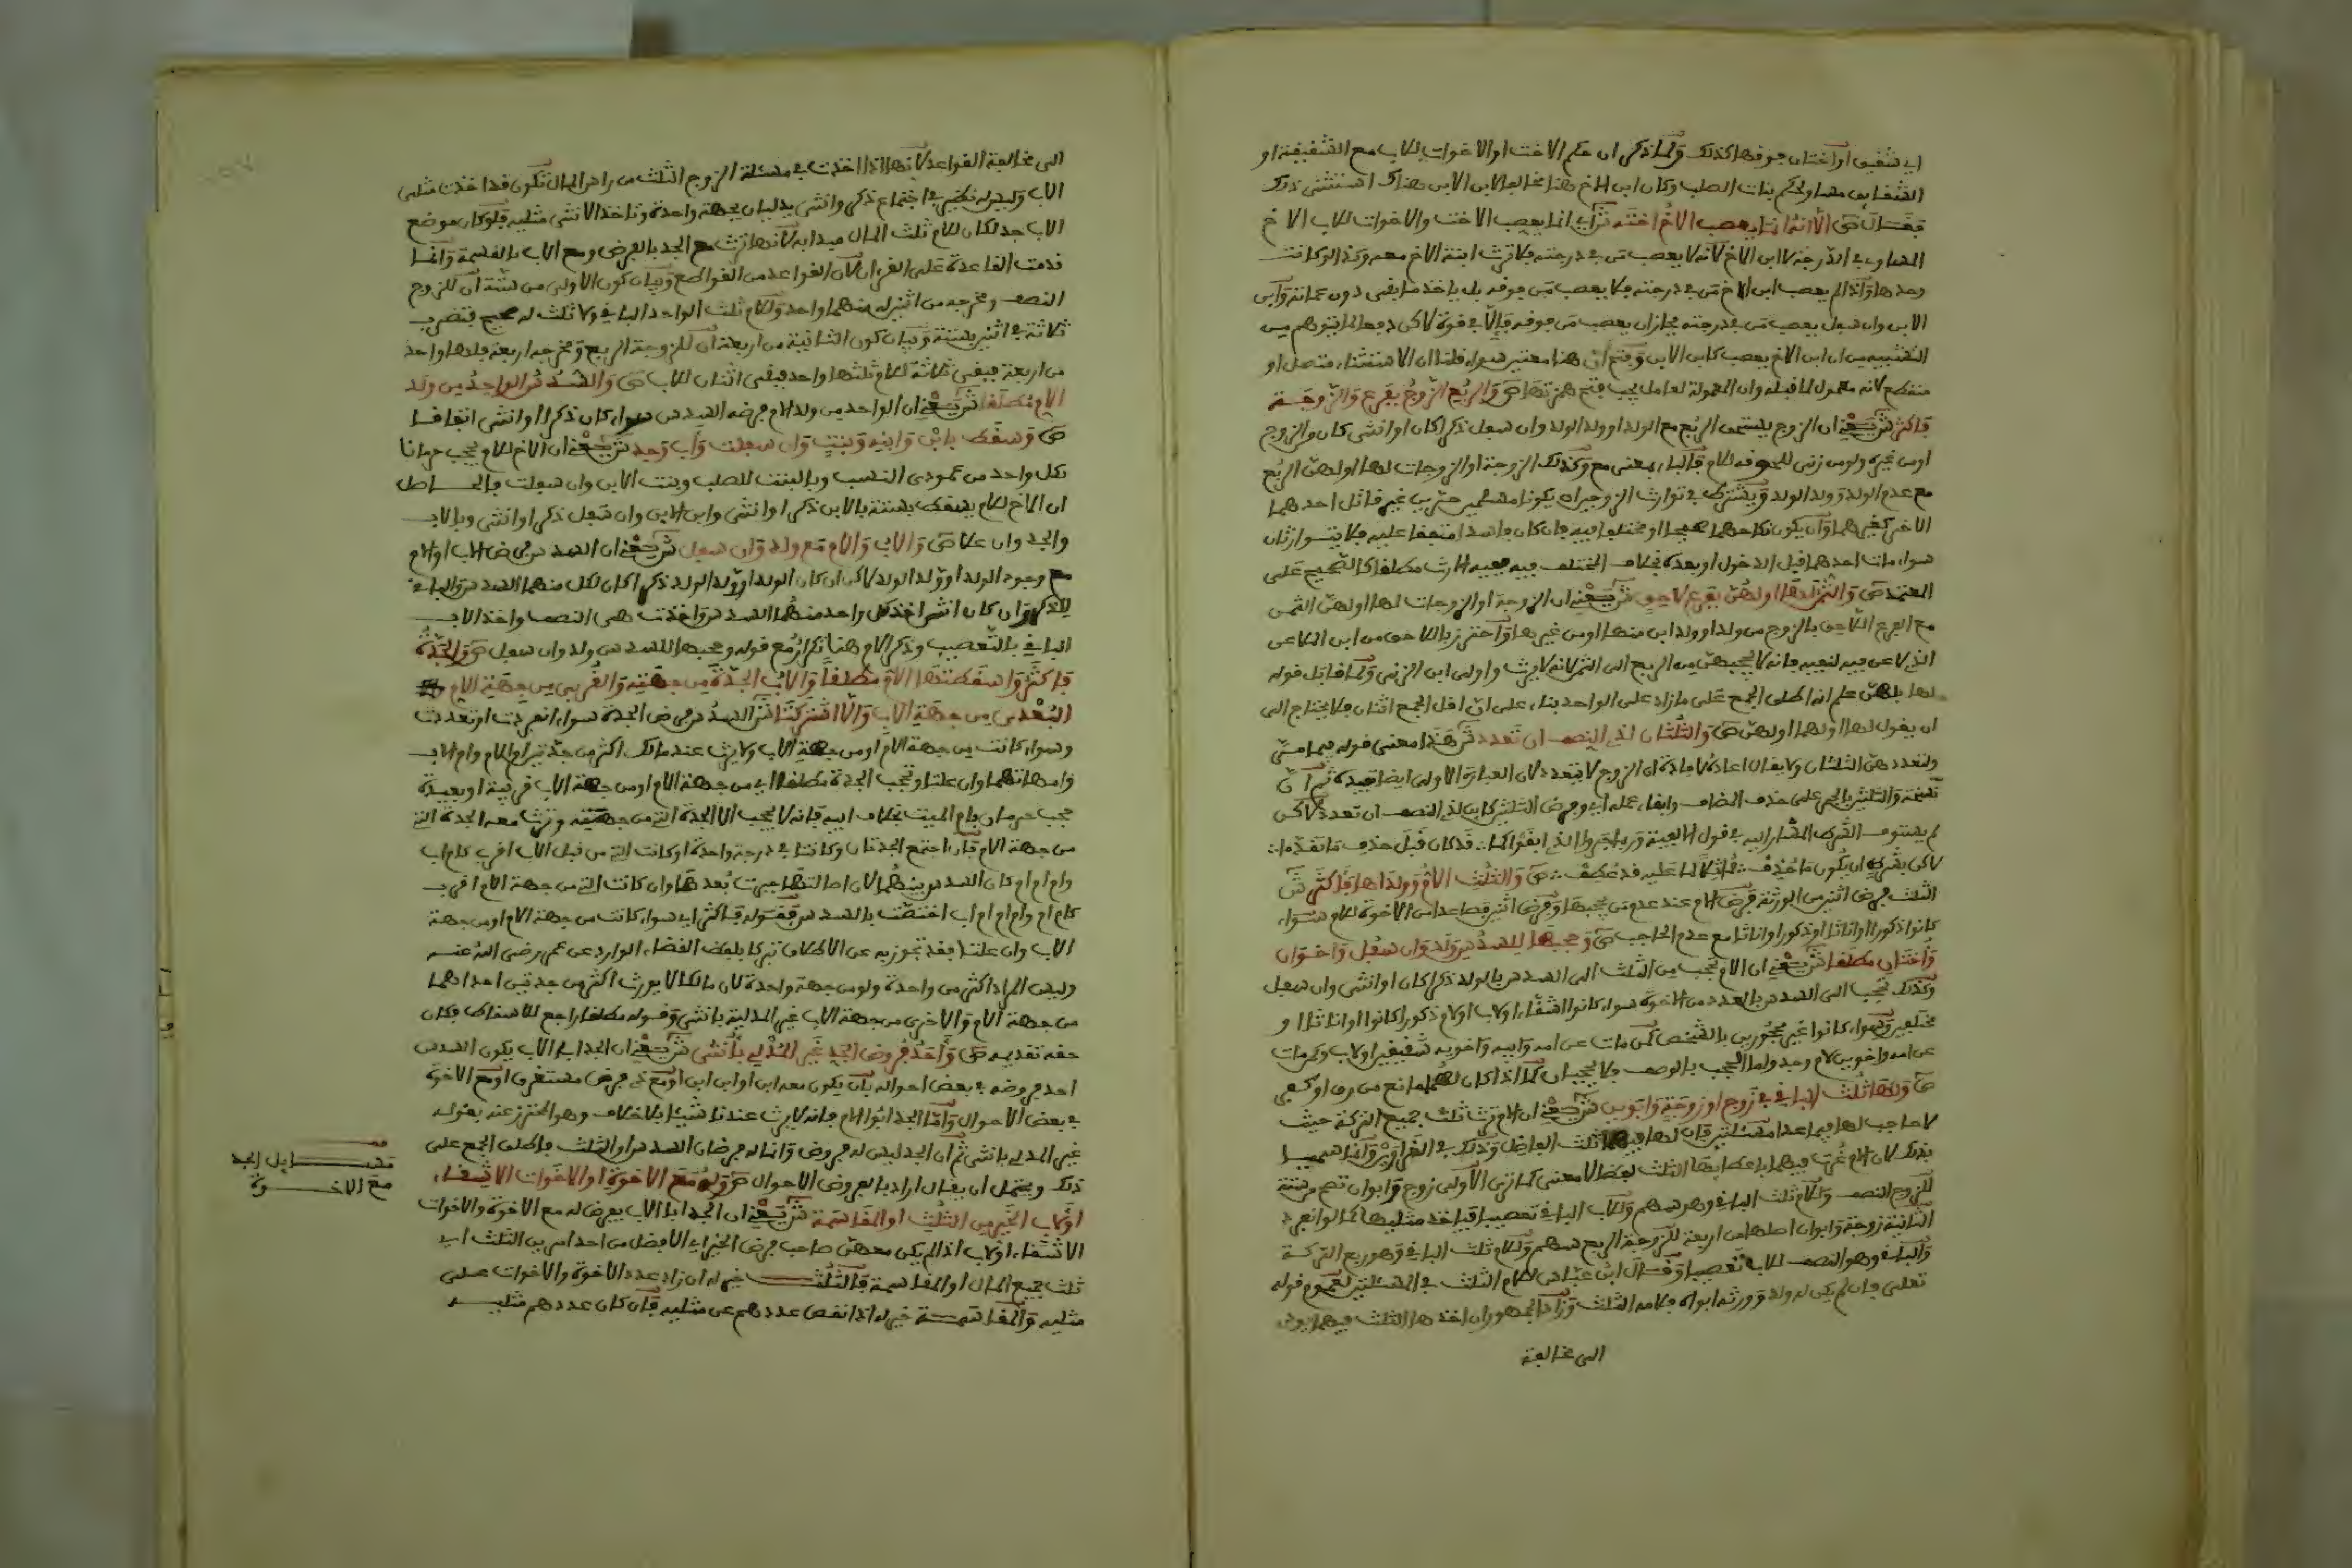 اي شقيق او اختان فوقها كذلك ولما ذكر ان حكم الاخت او الاخوات للاب مع الشقيقة او
الشقايق مساو لحكم بنات الصلب وكان ابن الاخ هنا مخالفا لابن الابن هناك استثنى ذلك
فقال ص الا انه انما يعصب الاخ اخته ش اي انما يعصب الاخت والاخوات للاب الاخ
المساوي في الدرجة لا ابن الاخ لانه لا يعصب من في درجته فلا ترث ابنة الاخ معه وكذا لو كانت
وحدها واذا لم يعصب ابن الاخ من في درجته فلا يعصب من فوقه بل ياخذ ما بقي دون عماته وابن
الابن وان سفل يعصب من في درجته فجاز ان يعصب من فوقه فالا في قوة لاكن دفعا لما يتوهم من
التشبيه من ان ابن الاخ يعصب كابن الابن وفتح ان هنا متعين سواء قلنا ان الاستثناء متصل او
منقطع لانه معمول لما قبله وان المعمولة لعامل يجب فتح همزتها ص والربع الزوج بفرع والزوجة
فاكثر ش يعني ان الزوج يستحق الربع مع الولد او ولد الولد وان سفل ذكرا كان او انثى كان من الزوج
او من غيره ولو من زنى للحوقه للام فالباء بمعنى مع وكذلك الزوجة او الزوجات لها او لهن الربع
مع عدم الولد وولد الولد ويشترط في توارث الزوجين ان يكونا مسلمين حرين غير قاتل احدهما
الاخر كغيرهما وان يكون نكاحهما صحيحا او مختلفا فيه فان كان فاسدا متفقا عليه فلا يتوارثان
سواء مات احدهما قبل الدخول او بعده بخلاف المختلف فيه ففيه الارث مطلقا كالصحيح على
المعتمد ص والثمن لها او لهن بفرع لاحق ش يعني ان الزوجة او الزوجات لها او لهن الثمن
مع الفرع اللاحق بالزوج من ولد او ولد ابن منها او من غيرها واحترز باللاحق من ابن الملاعن
الذي لاعن فيه لنفيه فانه لا يحجبهن من الربع الى الثمن لانه لا يرث واولى ابن الزنى ولما قابل قوله
لها بلهن علم انه اطلق الجمع على ما زاد على الواحد بناء على ان اقل الجمع اثنان فلا يحتاج الى
ان يقول لها او لهما او لهن ص والثلثان لذي النصف ان تعدد ش هذا معنى قوله فيما مر
ولتعددهن الثلثان ولا يقال اعاده لافادة ان الزوج لا يتعدد لان العبارة الاولى ايضا تفيده ثم ان
لم يستوف الشرط المشار اليه في قول الالفية وربما جروا الذي ابقوا كما ∴ قد كان قبل حذف ما تقدما ∴
لاكن بشرط ان يكون ما حذف ∴ مماثلا لما عليه قد عطف ∴ ص والثلث الام وولداها فاكثر ش
الثلث فرض اثنين من الورثة فرض الام عند عدم من يحجبها وفرض اثنين فصاعدا من الاخوة للام سواء
كانوا ذكورا او اناثا او ذكورا واناثا مع عدم الحاجب ص وحجبها للسدس ولد وان سفل واخوان
واختان مطلقا ش يعني ان الام تحجب من الثلث الى السدس بالولد ذكرا كان او انثى وان سفل
وكذلك تحجب الى السدس بالعدد من الاخوة سواء كانوا اشقاء او لاب او لام ذكورا كانوا او اناثا او
مختلفين وسواء كانوا غير محجوبين بالشخص كمن مات عن امه وابيه واخويه شقيقين او لاب وكمن مات
عن امه واخوين لام وجد واما الحجب بالوصف فلا يحجبان كما اذا كان لهما مانع من رق او كفر
ص ولها ثلث الباقي في زوج او زوجة وابوين ش يعني ان الام ترث ثلث جميع التركة حيث
لا حاجب لها فيما عدا مسئلتين فان لها فيهما ثلث الفاضل وذلك في الغراوين وانما سميتا
بذلك لان الام غرت فيهما باعطائها الثلث لفظا لا معنى كما ترى الاولى زوج وابوان تصح من ستة
للزوج النصف وللام ثلث الباقي وهو سهم وللاب الباقي تعصيبا فياخذ مثليها كما لو انفردا
الثانية زوجة وابوان اصلها من اربعة للزوجة الربع سهم وللام ثلث الباقي وهو ربع التركة
والباقي وهو النصف للاب تعصيبا وقال ابن عباس للام الثلث في المسئلتين لعموم قوله
تعلى فان لم يكن له ولد وورثه ابواه فلامه الثلث وراى الجمهور ان اخذها الثلث فيهما يودي
الى مخالفة
الى مخالفة القواعد لانها اذا اخذت في مسئلة الزوج الثلث من راس المال تكون قد اخذت مثلي
الاب وليس له نظير في اجتماع ذكر وانثى يدليان بجهة واحدة وتاخذ الانثى مثليه فلو كان موضع
الاب جد لكان للام ثلث المال ميدابه لانها ترث مع الجد بالفرض ومع الاب بالقسمة وانما
قدمت القاعدة على القران لان القواعد من القواطع وبيان كون الاولى من ستة ان للزوج
النصف ومخرجه من اثنين له منهما واحد وللام ثلث الواحد الباقي ولا ثلث له صحيح فتضرب
ثلاثة في اثنين بستة وبيان كون الثانية من اربعة ان للزوجة الربع ومخرجه اربعة فلها واحد
من اربعة فيبقى ثلاثة للام ثلثها واحد فيبقى اثنان للاب ص والسدس للواحد من ولد
الام مطلقا ش يعني ان الواحد من ولد الام فرضه السدس سواء كان ذكرا او انثى اتفاقا
ص وسقط بابن وابنه وبنت وان سفلت واب وجد ش يعني ان الاخ للام يحجب حرمانا
بكل واحد من عمودي النسب وبالبنت للصلب وبنت الابن وان سفلت فالحاصل
ان الاخ للام يسقط بستة بالابن ذكرا او انثى وابن الابن وان سفل ذكرا او انثى وبالاب
والجد وان علا ص والاب والام مع ولد وان سفل ش يعني ان السدس فرض الاب او الام
مع وجود الولد او ولد الولد لاكن ان كان الولد او ولد الولد ذكرا كان لكل منهما السدس والباقي
للذكر وان كان انثى اخذ كل واحد منهما السدس واخذت هي النصف واخذ الاب
الباقي بالتعصيب وذكر الام هنا تكرار مع قوله وحجبها للسدس ولد وان سفل ص والجدة
فاكثر واسقطتها الام مطلقا والاب الجدة من جهته والقربى من جهة الام
البعدى من جهة الاب والا اشتركتا ش السدس فرض الجدة سواء انفردت او تعددت
وسواء كانت من جهة الام او من جهة الاب ولا يرث عند مالك اكثر من جدتين ام الام وام الاب
وامهاتهما وان علتا وتحجب الجدة مطلقا اي من جهة الام او من جهة الاب قريبة او بعيدة
حجب حرمان بام الميت بخلاف ابيه فانه لا يحجب الا الجدة التي من جهته وترث معه الجدة التي
من جهة الام فان اجتمع الجدتان وكانتا في درجة واحدة او كانت التي من قبل الاب اقرب كام اب
وام ام ام كان السدس بينهما لان اصالتها جبرت بعدها وان كانت التي من جهة الام اقرب
كام ام وام ام اب اختصت بالسدس فقوله فاكثر اي سواء كانت من جهة الام او من جهة
الاب وان علتا فقد تجوز به عن الاطلاق تبركا بلفظ القضاء الوارد عن عمر رضي الله عنه
وليس المراد اكثر من واحدة ولو من جهة واحدة لان مالكا لا يورث اكثر من جدتين احداهما
من جهة الام والاخرى من جهة الاب غير المدلية بانثى وقوله مطلقا راجع للاسقاط فكان
حقه تقديمه ص واحد فروض الجد غير المدلي بانثى ش يعني ان الجد ابا الاب يكون السدس
احد فروضه في بعض احواله بان يكون معه ابن او ابن ابن او مع ذي فرض مستغرق او مع الاخوة
في بعض الاحوال واما الجد ابو الام فانه لا يرث عندنا شيئا بلا خلاف وهو المحترز عنه بقوله
غير المدلي بانثى ثم ان الجد ليس له فروض وانما له فرضان السدس او الثلث فاطلق الجمع على
ذلك ويحتمل ان يقال اراد بالفروض الاحوال ص وله مع الاخوة او الاخوات الاشقاء
او لاب الخير من الثلث او المقاسمة ش يعني ان الجد ابا الاب يفرض له مع الاخوة والاخوات
الاشقاء او لاب اذا لم يكن معهن صاحب فرض الخير اي الافضل من احد امرين الثلث اي
ثلث جميع المال او المقاسمة فالثلث خير له ان زاد عدد الاخوة والاخوات على
مثليه والمقاسمة خير له اذا نقص عددهم عن مثليه فان كان عددهم مثليه
مسايل الجد
مع الاخوة